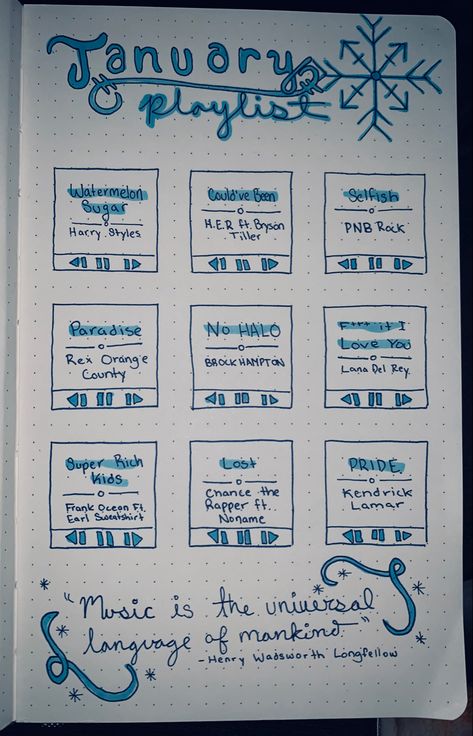 January
playlist
Watermelon
Sugar
Harry Styles
Could've Been
H.E.R ft. Bryson
Tiller
Selfish
PNB Rock
Paradise
Rex Orange
County
No HALO
BROCKHAMPTON
F*** it I
Love You
Lana Del Rey
Super Rich
Kids
Frank Ocean Ft.
Earl Sweatshirt
Lost
Chance the
Rapper ft.
Noname
PRIDE.
Kendrick
Lamar
"Music is the universal
language of mankind"
- Henry Wadsworth Longfellow